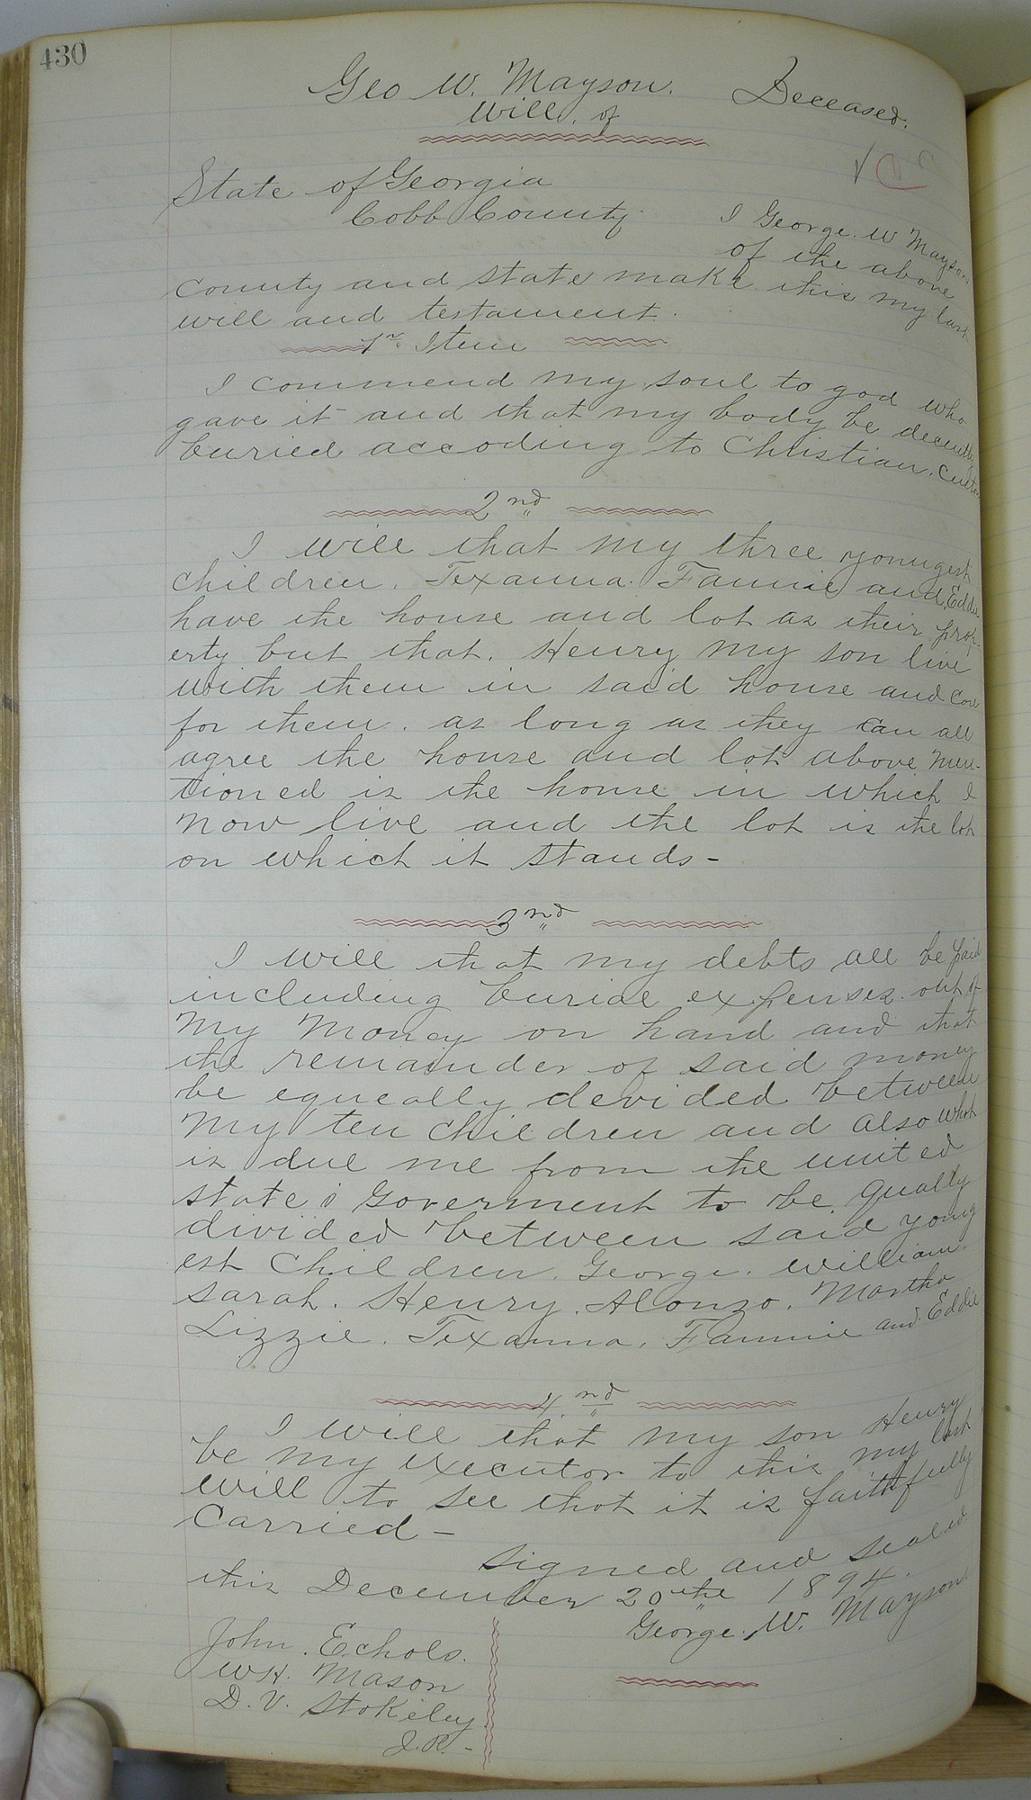 430
Geo W. Mayson. Deceased.
Will. of
State of Georgia
Cobb County. I George. W Mayson
of the above
county and state make this my last
will and testament.
1st Item
I commend my soul to god who
gave it and that my body be decently
buried accoding to Christian.
2nd
I will that my three youngest
children. Texanna. Fannie and Eddie
have the house and lot as their prop-
erty but that. Henry my son live
with them in said house and care
for them. as long as they can all
agree the house and lot above men-
tioned is the house in which I
now live and the lot is the lot
on which it stands-
3nd
I will that my debts all be paid
including burial expenses. out of
my money on hand and that
the remainder of said money
be equeally devided between
my ten children and also what
is due me from the united
state s Goverment to be qually
divided between said young
est children. George. William.
Sarah. Henry. Alonzo. Martha
Lizzie. Texanna. Fannie and Eddie
4nd
I will that my son Henry
be my executor to this my last
will to see that it is faithfully
carried-
signed and sealed
this December 20the 1894.
George. W. Mayson
John. Echols.
W.H. Mason
D. V. Stokeley
J.P.-